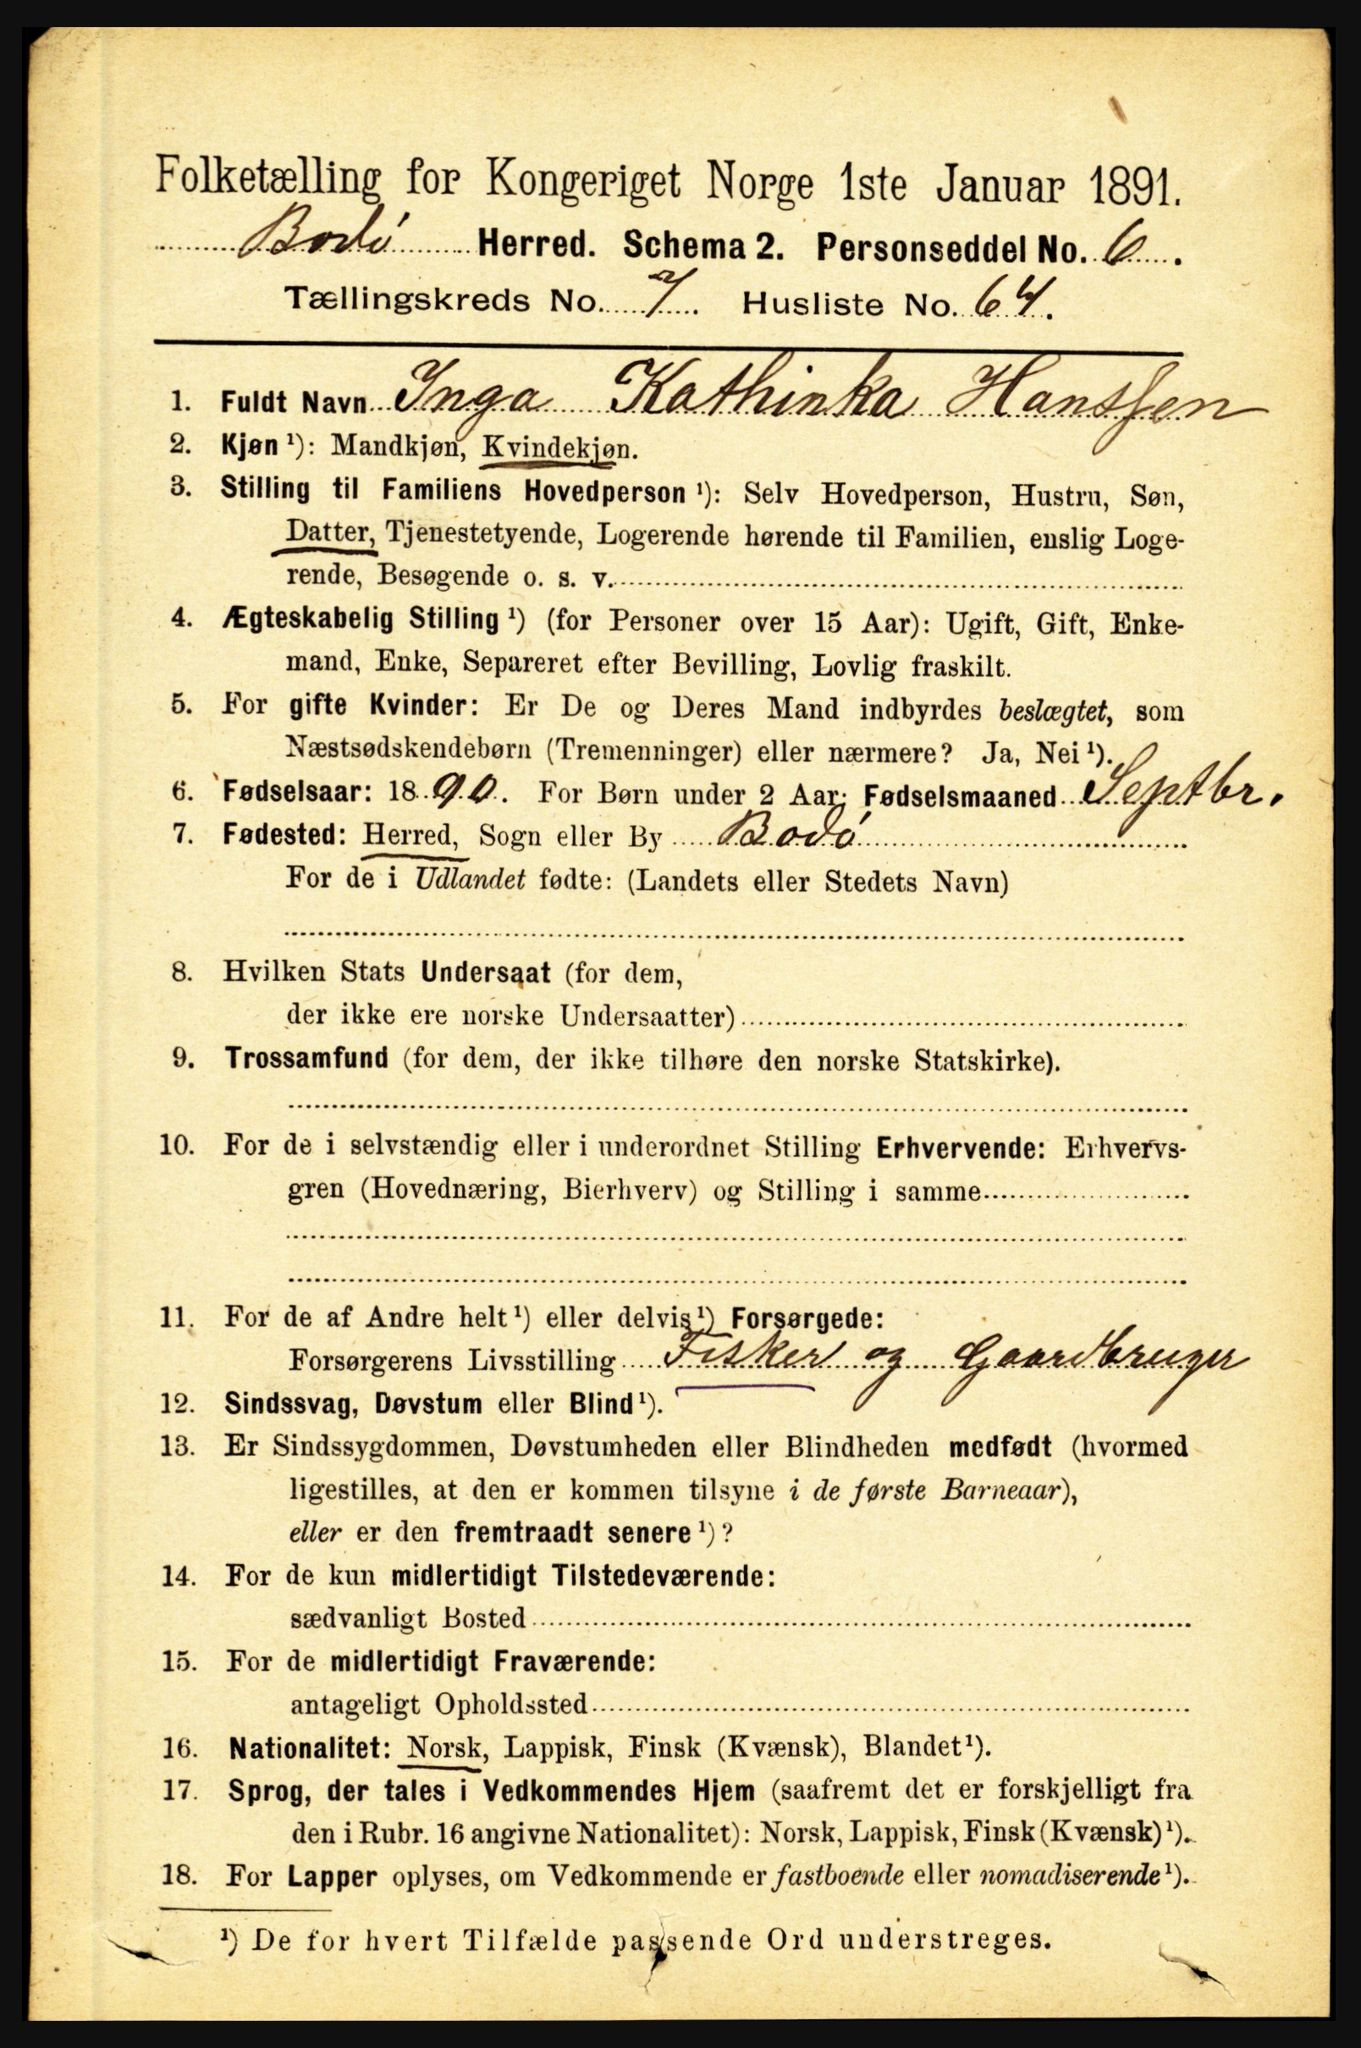 Folketælling for Kongeriget Norge 1ste Januar 1891.
Bodø Herred. Schema 2. Personseddel No. 6.
Tællingskreds No. 7. Husliste No. 64.
1. Fuldt Navn Inga Kathinka Hanssen
2. Kjøn ¹): Mandkjøn, Kvindekjøn.
3. Stilling til Familiens Hovedperson ¹): Selv Hovedperson, Hustru, Søn,
Datter, Tjenestetyende, Logerende hørende til Familien, enslig Loge-
rende, Besøgende o. s. v.
4. Ægteskabelig Stilling ¹) (for Personer over 15 Aar): Ugift, Gift, Enke-
mand, Enke, Separeret efter Bevilling, Lovlig fraskilt.
5. For gifte Kvinder: Er De og Deres Mand indbyrdes beslægtet, som
Næstsødskendebørn (Tremenninger) eller nærmere? Ja, Nei ¹).
6. Fødselsaar: 1890. For Børn under 2 Aar: Fødselsmaaned Septbr.
7. Fødested: Herred, Sogn eller By Bodø
For de i Udlandet fødte: (Landets eller Stedets Navn)
8. Hvilken Stats Undersaat (for dem,
der ikke ere norske Undersaatter)
9. Trossamfund (for dem, der ikke tilhøre den norske Statskirke).
10. For de i selvstændig eller i underordnet Stilling Erhvervende: Erhvervs-
gren (Hovednæring, Bierhverv) og Stilling i samme
11. For de af Andre helt ¹) eller delvis ¹) Forsørgede:
Forsørgerens Livsstilling Fisker og Gaardbruger
12. Sindssvag, Døvstum eller Blind ¹).
13. Er Sindssygdommen, Døvstumheden eller Blindheden medfødt (hvormed
ligestilles, at den er kommen tilsyne i de første Barneaar),
eller er den fremtraadt senere ¹)?
14. For de kun midlertidigt Tilstedeværende:
sædvanligt Bosted
15. For de midlertidigt Fraværende:
antageligt Opholdssted
16. Nationalitet: Norsk, Lappisk, Finsk (Kvænsk), Blandet ¹).
17. Sprog, der tales i Vedkommendes Hjem (saafremt det er forskjelligt fra
den i Rubr. 16 angivne Nationalitet): Norsk, Lappisk, Finsk (Kvænsk) ¹).
18. For Lapper oplyses, om Vedkommende er fastboende eller nomadiserende ¹).
¹) De for hvert Tilfælde passende Ord understreges.